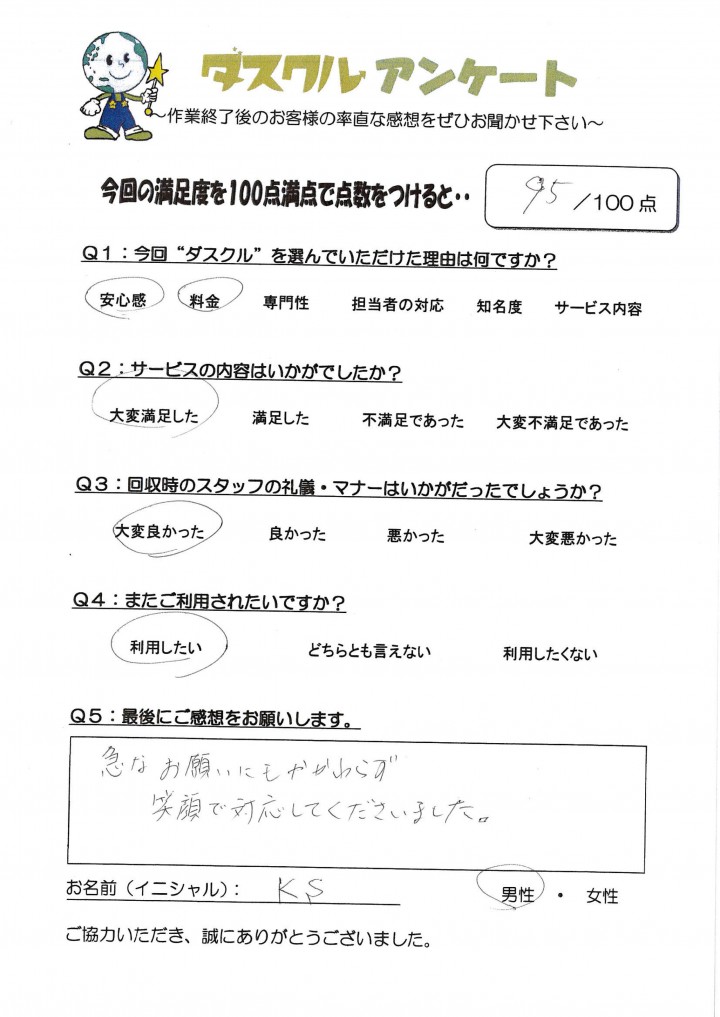 ダスクル アンケート
～作業終了後のお客様の率直な感想をぜひお聞かせ下さい～
今回の満足度を100点満点で点数をつけると‥ 95 /100点
Q1：今回“ダスクル”を選んでいただけた理由は何ですか？
安心感 料金 専門性 担当者の対応 知名度 サービス内容
Q2：サービスの内容はいかがでしたか？
大変満足した 満足した 不満足であった 大変不満足であった
Q3：回収時のスタッフの礼儀・マナーはいかがだったでしょうか？
大変良かった 良かった 悪かった 大変悪かった
Q4：またご利用されたいですか？
利用したい どちらとも言えない 利用したくない
Q5：最後にご感想をお願いします。
急なお願いにもかかわらず
笑顔で対応してくださいました。
お名前（イニシャル）： KS 男性 ・ 女性
ご協力いただき、誠にありがとうございました。